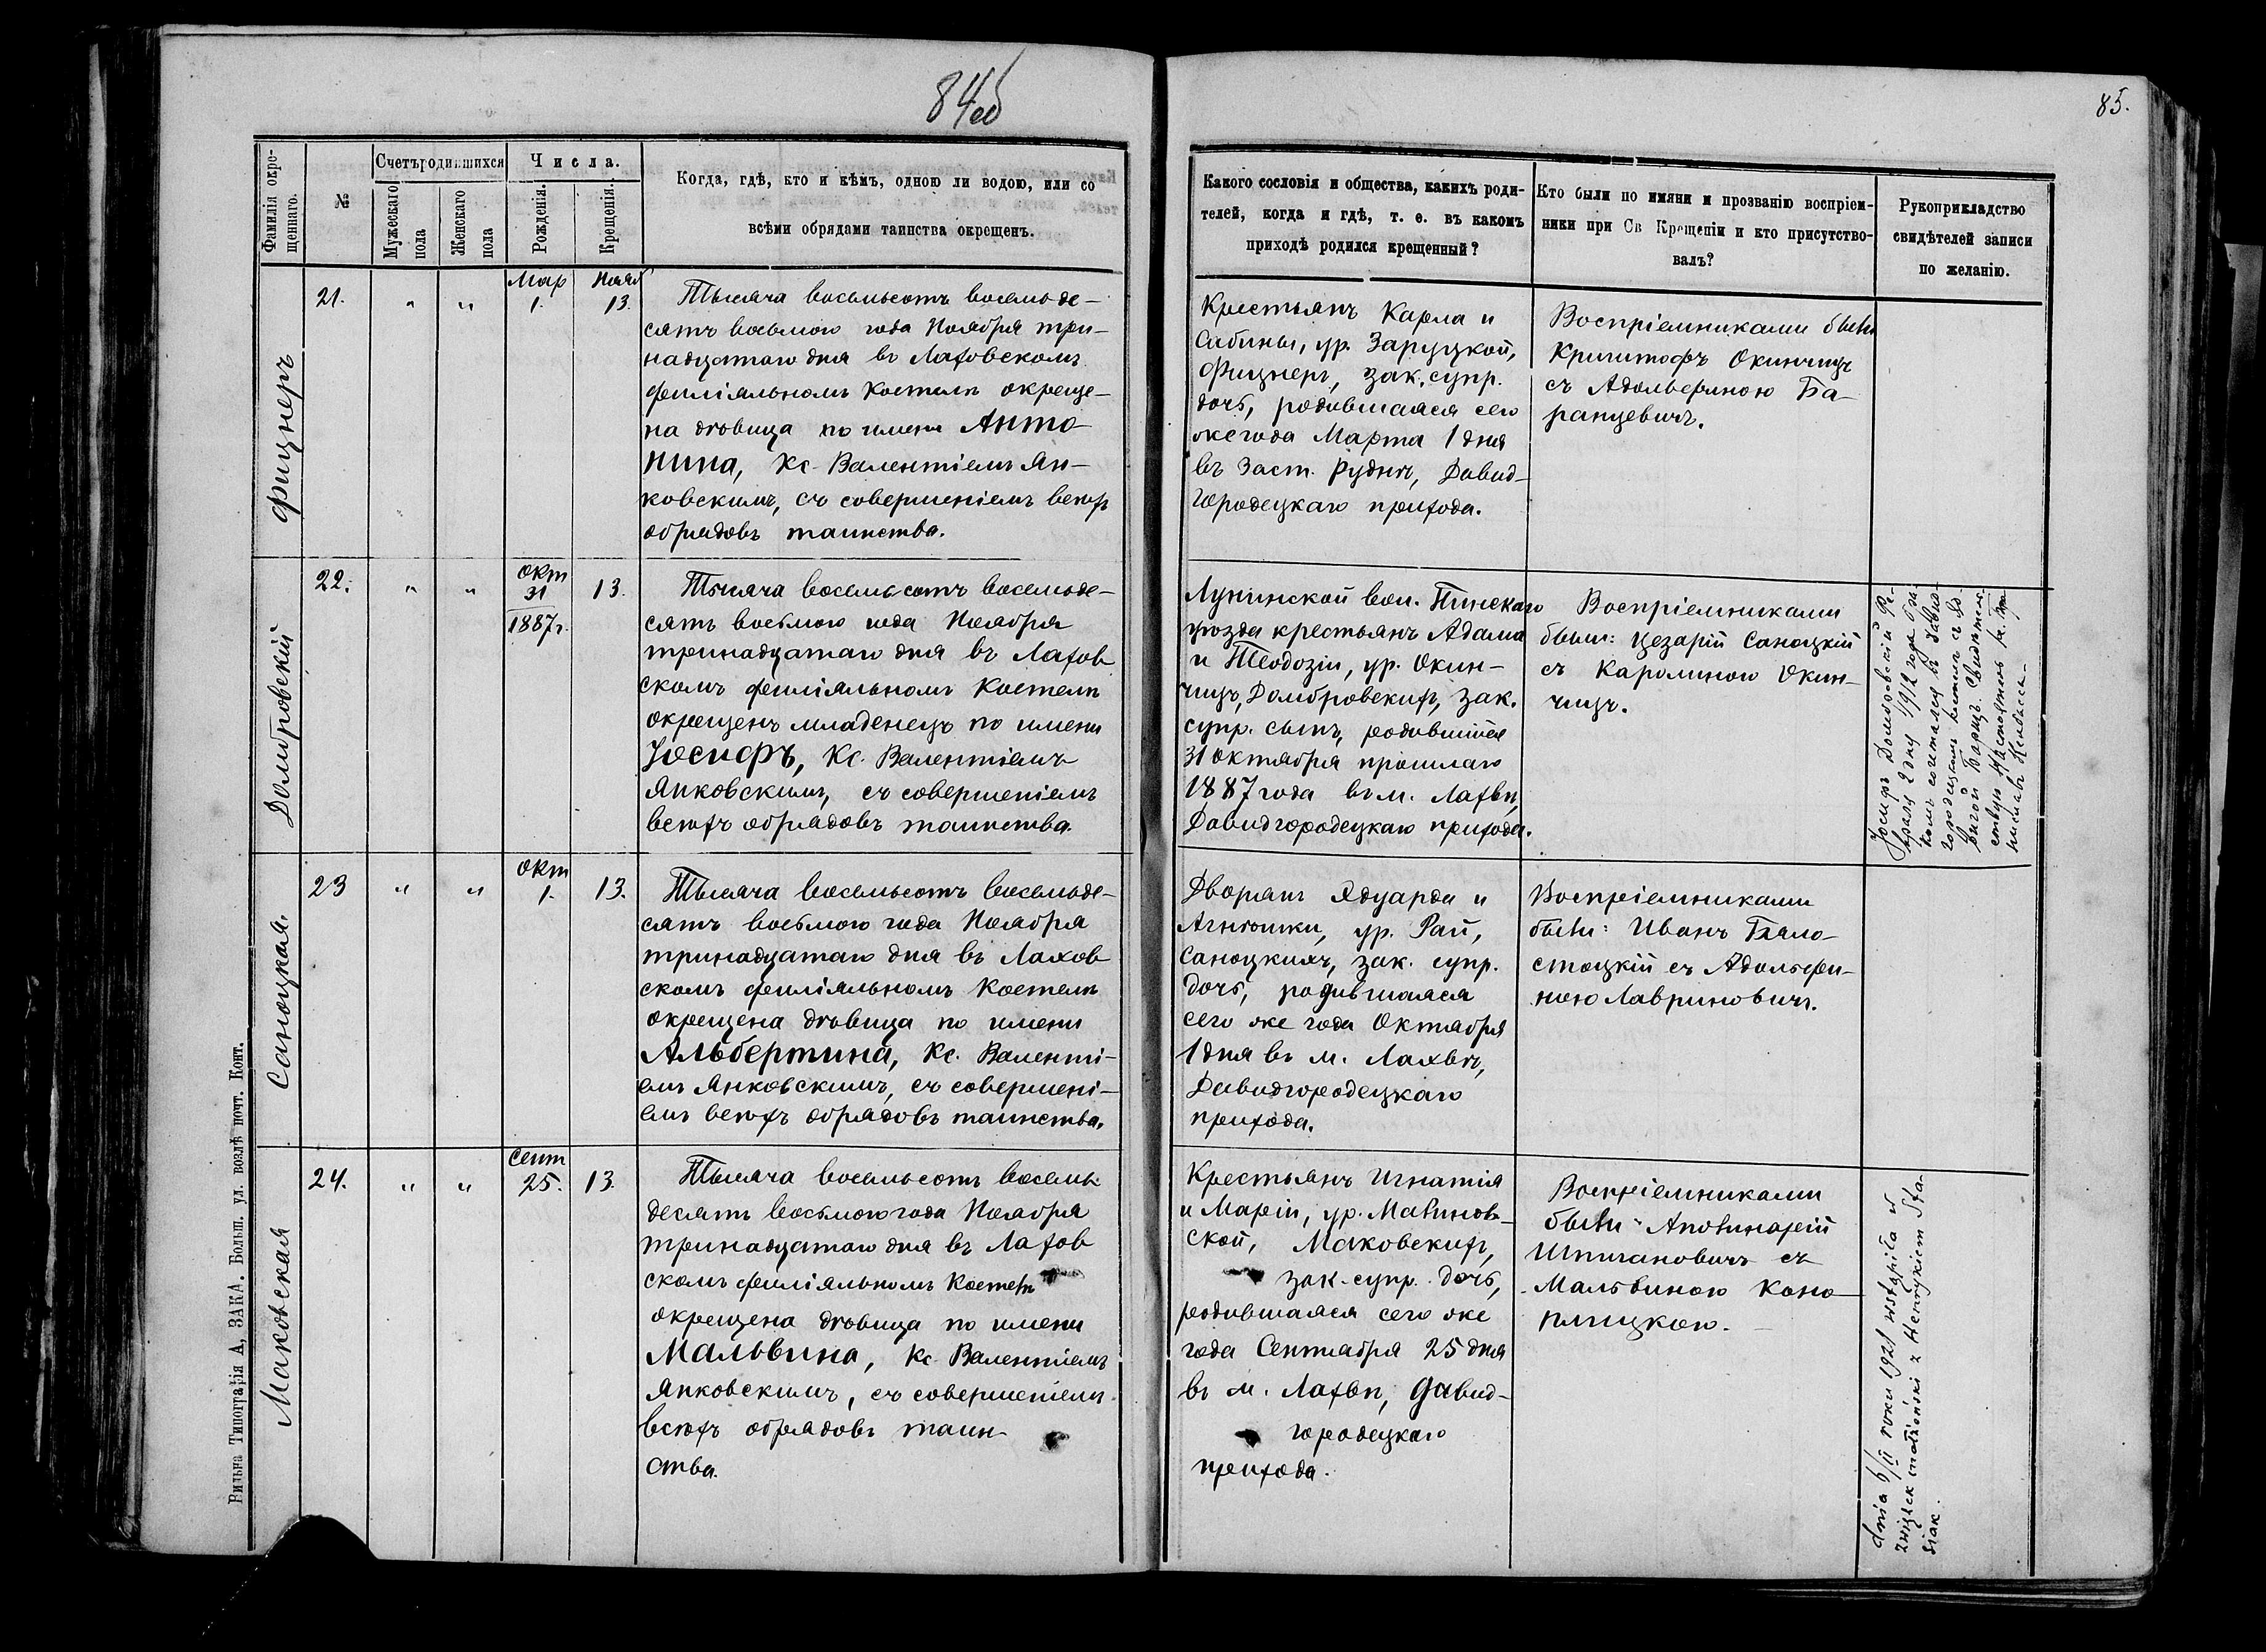 84об
85.
Фамилія окре-
щеннаго.
№
Счетъ родившихся
Мужескаго
пола
Женскаго
пола
Числа.
Рожденія.
Крещенія.
Когда, гдѣ, кто и кѣмъ, одною ли водою, или со
всѣми обрядами таинства окрещенъ.
Какого сословія и общества, какихъ роди-
телей, когда и гдѣ, т. е. въ какомъ
приходѣ родился крещенный?
Кто были по имяни и прозванію воспріем-
ники при Св Крещеніи и кто присутство-
валъ?
Рукоприкладство
свидѣтелей записи
по желанію.
Фицнеръ
21.
„
„
Мар
1.
Нояб
13.
Тысяча восемьсотъ восемьде-
сятъ восьмого года Ноября три-
надцатаго дня въ Лаховскомъ
филіяльномъ костелѣ окреще-
на дѣвица по имени Анто-
нина, Кс. Валентіемъ Ян-
ковскимъ, съ совершеніемъ всѣхъ
обрядовъ таинства.
Крестьянъ Карла и
Сабины, ур. Заруцкой,
Фицнеръ, зак. супр.
дочь, родившаяся сего
же года Марта 1 дня
въ заст. Руднѣ, Давид-
городецкаго прихода.
Воспріемниками были
Криштофъ Окинчицъ
съ Адольфиною Ба-
ранцевичъ.
Домбровскій
22.
„
„
Окт
31
1887 г.
13.
Тысяча восемьсотъ восемьде-
сятъ восьмого года Ноября
тринадцатаго дня въ Лахов
скомъ филіяльномъ костелѣ
окрещенъ младенецъ по имени
Іосифъ, Кс. Валентіемъ
Янковскимъ, съ совершеніемъ
всѣхъ обрядовъ таинства.
Лунинской вол. Пинскаго
уѣзда крестьянъ Адама
и Теодозіи, ур. Окин-
чицъ, Домбровскихъ, зак.
супр. сынъ, родившійся
31 Октября прошлаго
1887 года въ м. Лахвѣ,
Давидгородецкаго прихода.
Воспріемниками
были: Цезарій Саноцкій
съ Каролиною Окин-
чицъ.
Іосифъ Домбровскій Фе-
враля 2 дня 1912 года бра-
комъ сочетался въ Давид-
городецкомъ костелѣ съ
Свидѣтель-
Саноцкая.
23
„
„
Окт
1.
13.
Тысяча восемьсотъ восемьде-
сятъ восьмого года Ноября
тринадцатаго дня въ Лахов
скомъ филіяльномъ костелѣ
окрещена дѣвица по имени
Альбертина, Кс. Валенті-
емъ Янковскимъ, съ совершені-
емъ всѣхъ обрядовъ таинства.
Дворянъ Эдуарда и
Агнѣшки, ур. Рай,
Саноцкихъ, зак. супр.
дочь, родившаяся
сего же года Октября
1 дня въ м. Лахвѣ,
Давидгородецкаго
прихода.
Воспріемниками
были: Иванъ Бяло-
стоцкій съ Адольфи-
ною Лавриновичъ.
Маковская
24.
„
„
Сент
25.
13.
Тысяча восемьсотъ восемь-
десятъ восьмого года Ноября
тринадцатаго дня въ Лахов
скомъ филіяльномъ костелѣ
окрещена дѣвица по имени
Мальвина, Кс. Валентіемъ
Янковскимъ, съ совершеніемъ
всѣхъ обрядовъ таин-
ства.
Крестьянъ Игнатія
и Маріи, ур. Малинов-
ской, Маковскихъ,
зак. супр. дочь,
родившаяся сего же
года Сентября 25 дня
въ м. Лахвѣ, Давид-
городецкаго
прихода.
Воспріемниками
были: Аполинарій
Шпигановичъ съ
Мальвиною Коно-
плицкою.
dnia 6/II roku 1921 wstąpiła w
związek małżeński z Henrykiem Sta-
siak.
Вильна Типографія А, ЗАКА. Больш. ул. возлѣ почт. Конт.